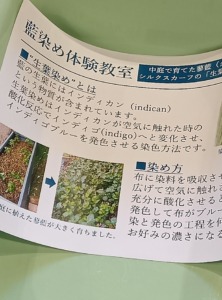 藍染め体験教室
中庭で育てた蓼藍（
シルクスカーフの「生葉
■"生葉染め"とは
藍の生葉にはインディカン (indican)
という物質が含まれています。
生葉染めはインディカンが空気に触れた時の
酸化反応でインディゴ(indigo)へと変化させ、
インディゴブルーを発色させる染色方法です。
庭に植えた蓼藍が大きく育ちました。
■染め方
布に染料を吸収させ
広げて空気に触れ
充分に酸化させると
発色して布がブルー
染と発色の工程を何
お好みの濃さになる